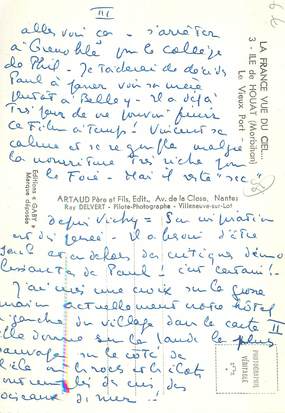 III
alles voir ça - s'arrêter
à Grenoble pr le collège
de Phil - Je tacherai de décider
Paul à passer voir sa mère
plutôt à Belley - Il a déjà
très peur de ne pouvoir finir
ce Film à temps! Vincent se
calme et se regonfle malgré
la nourriture très riche pour
le Foie - Mais il reste "sec"
depuis Vichy = Sa respiration
est dégagée. Il a besoin d'être
seul et en dehors des critiques démo
lissantes de Paul! c'est certain! -
J'ai mis une croix sur la grosse
main actuellement notre hôtel
à gauche du village dans la carte II
elle donne sur la lande le plus
sauvage sur le côté de
l'île
les cris des
oiseaux de mer!!
LA FRANCE VUE DU CIEL...
3 - ILE DE HOUAT (Morbihan)
Le Vieux Port
ARTAUD Père et Fils, Edit., Av. de la Close, Nantes
Ray DELVERT - Pilote-Photographe - Villeneuve-sur-Lot
Editions « GABY »
Marque déposée
PHOTOGRAPHIE
VÉRITABLE